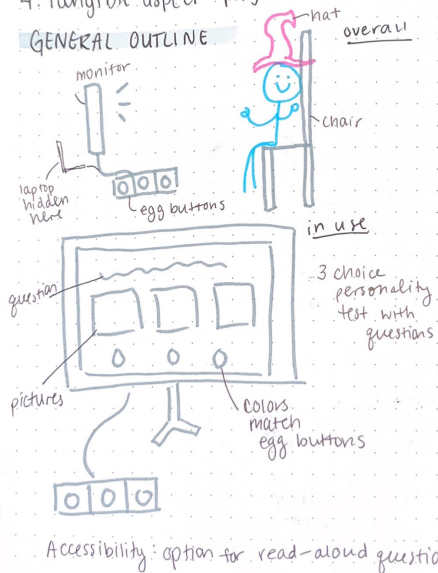 4.
GENERAL OUTLINE
hat
overall
monitor
chair
laptop
hidden
here
egg buttons
in use
question
3 choice
personality
test with
questions
pictures
colors
match
egg buttons
Accessibility: option for read-aloud